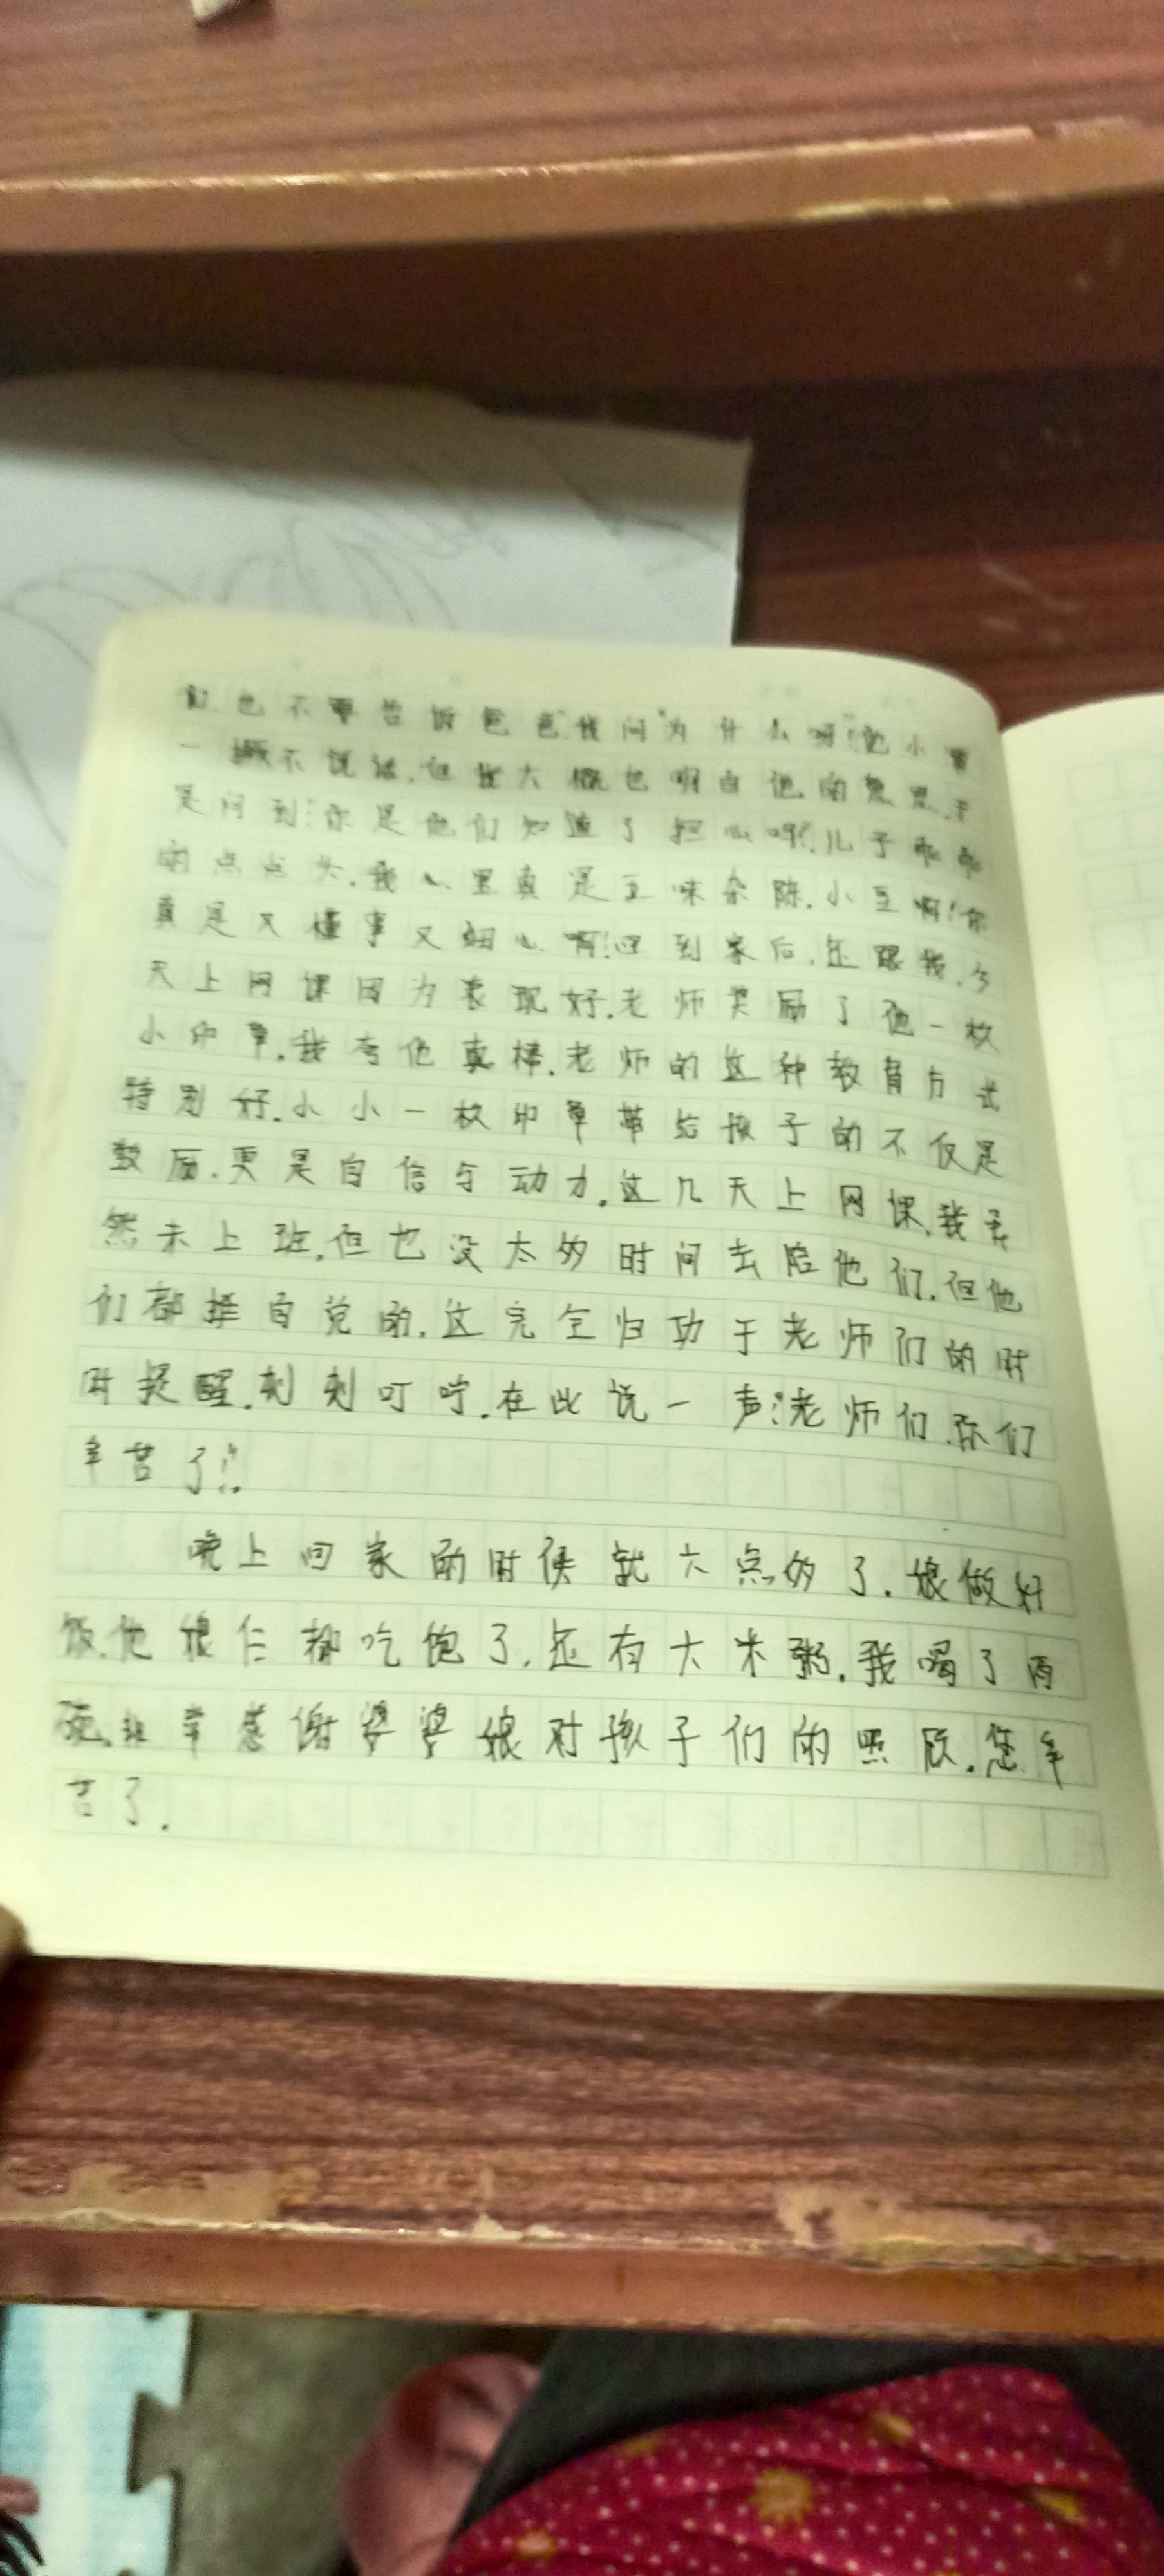 们.也不要告诉爸爸.我问"为什么呀!他小嘴
一撅不说话.但我大概也明白他的意思.于
是问到:你是他们知道了担心呀?儿子乖乖
的点点头.我心里真是五味杂陈.小豆啊!你
真是又懂事又细心啊!回到家后.还跟我.今
天上网课因为表现好.老师奖励了他一枚
小印章.我夸他真棒.老师的这种教育方式
特别好.小小一枚印章带给孩子的不仅是
鼓励.更是自信与动力.这几天上网课.我虽
然未上班.但也没太多时间去陪他们.但他
们都挺自觉的.这完全归功于老师们的时
时提醒.刻刻叮咛.在此说一声:老师们.你们
辛苦了!
晚上回家的时候就六点多了.娘做好
饭.他娘仨都吃饱了.还有大米粥.我喝了两
碗.非常感谢婆婆娘对孩子们的照顾.您辛
苦了.